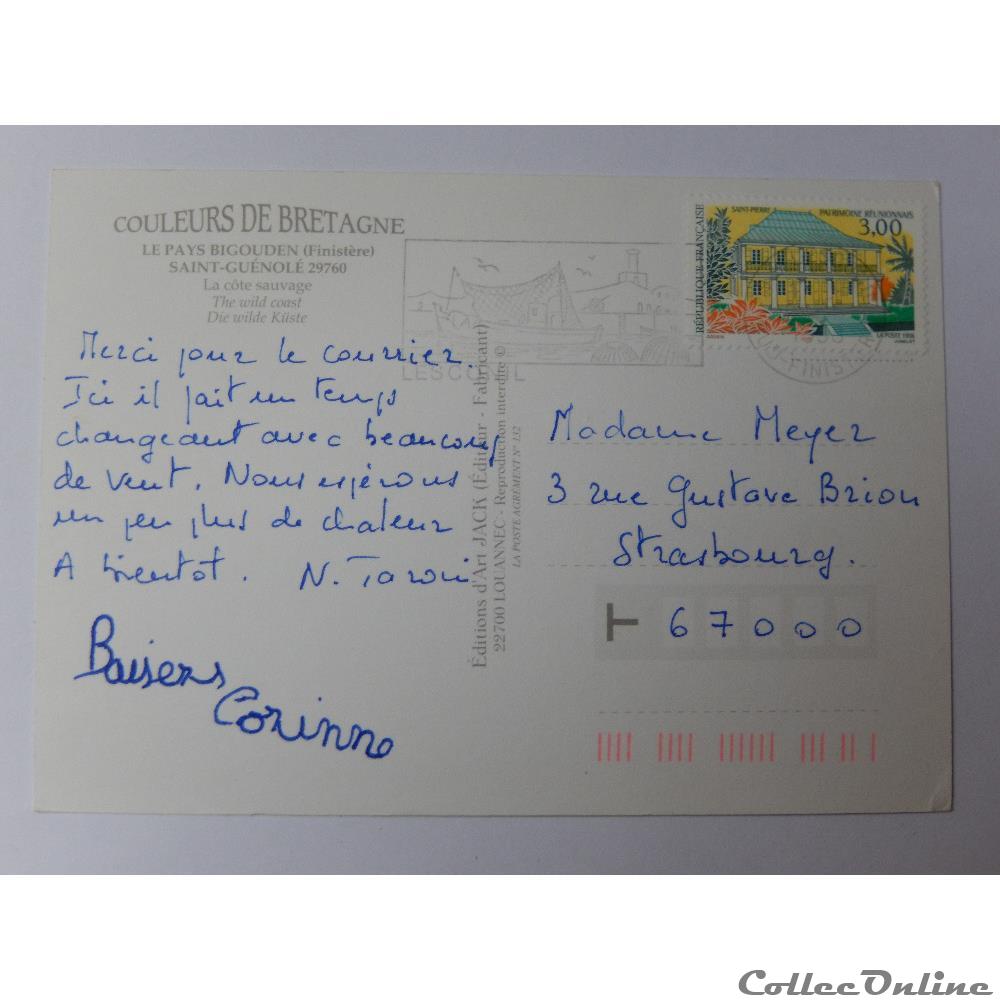 COULEURS DE BRETAGNE
LE PAYS BIGOUDEN (Finistère)
SAINT-GUÉNOLÉ 29760
La côte sauvage
The wild coast
Die wilde Küste
Merci pour le courrier.
Ici il fait un temps
changeant avec beaucoup
de vent. Nous espérons
un peu plus de chaleur
A bientôt. N.
Baisers
Corinne
LESCONIL
Éditions d'Art JACK (Éditeur - Fabricant)
22700 LOUANNEC - Reproduction interdite ©
LA POSTE AGRÉMENT N° 132
RÉPUBLIQUE FRANÇAISE
SAINT-PIERRE
PATRIMOINE RÉUNIONNAIS
3,00
LA POSTE 1998
FINISTÈRE
Madame Meyer
3 rue Gustave Brion
Strasbourg.
67000
CollecOnline